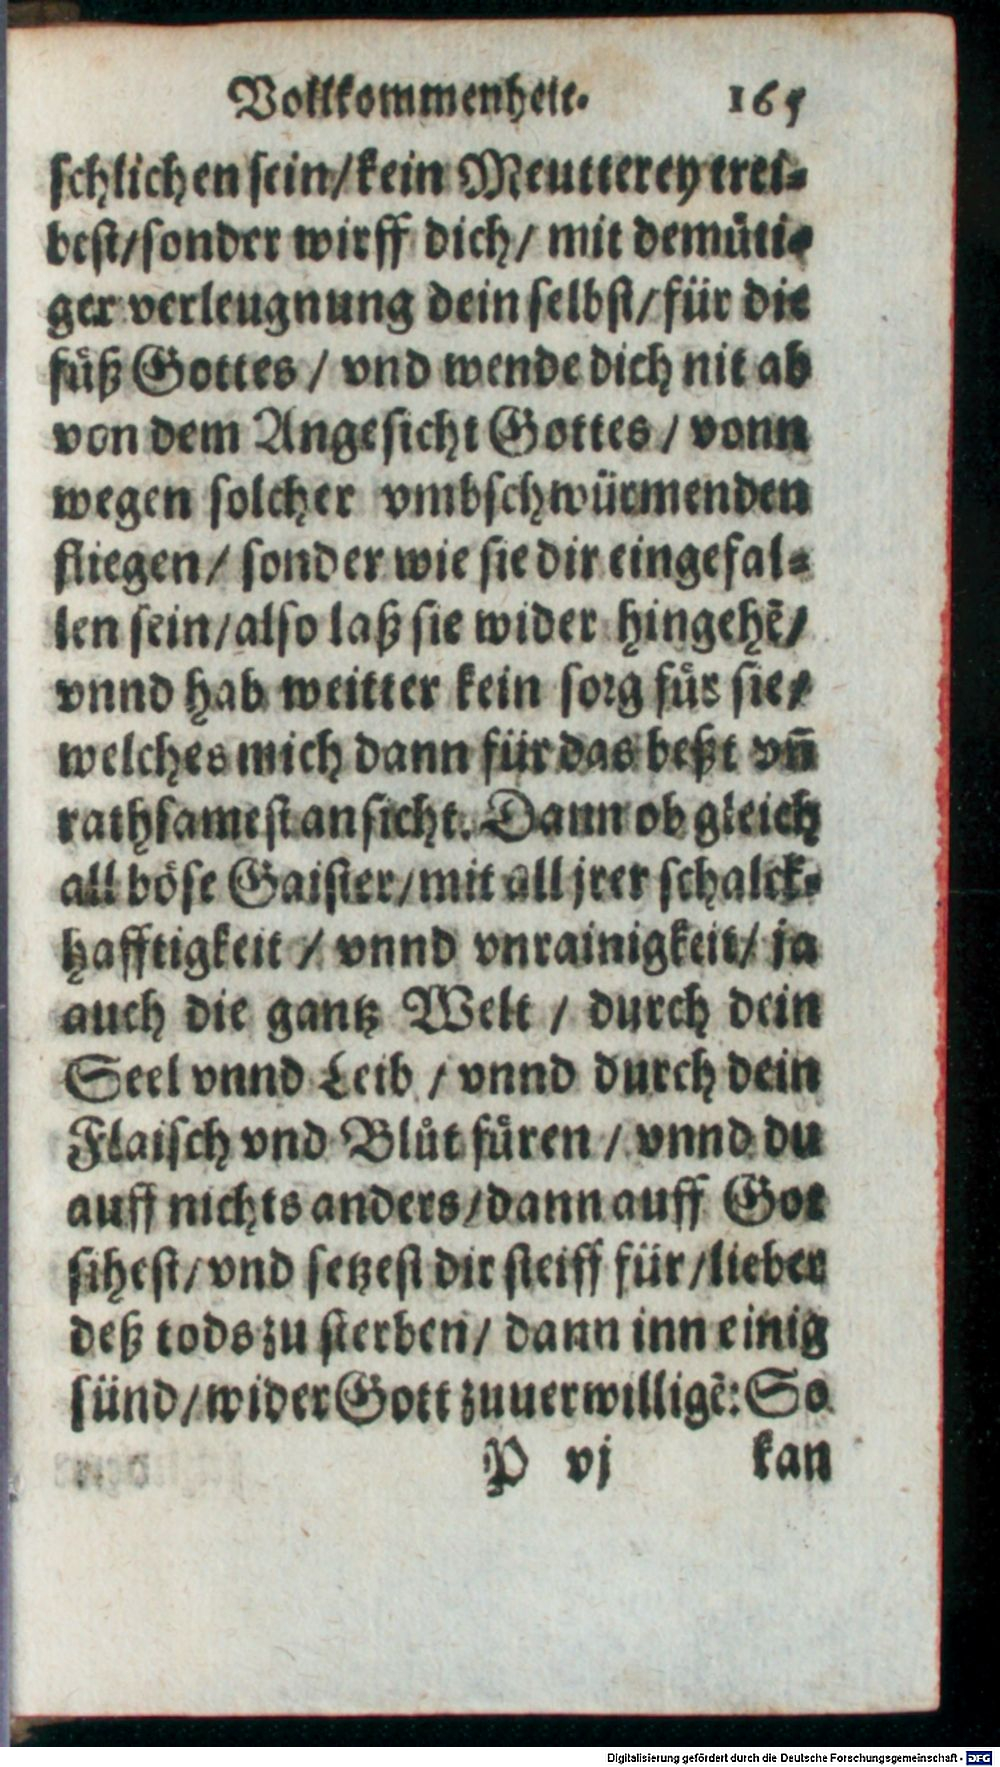 Vollkommenheit. 165
schlichen sein/kein Meutterey trei⸗
best/sonder wirff dich/ mit demuͤti⸗
ger verleugnung dein selbst/für die
fuͤß Gottes / vnd wende dich nit ab
von dem Angesicht Gottes / vonn
wegen solcher vmbschwürmenden
fliegen/ sonder wie sie dir eingefal⸗
len sein/also laß sie wider hingehē/
vnnd hab weitter kein sorg fuͤr sie/
welches mich dann für das beßt vn̄
rathsamest ansicht. Dann ob gleich
all boͤse Gaister/mit all jrer schalck⸗
hafftigkeit / vnnd vnrainigkeit/ ja
auch die gantz Welt / durch dein
Seel vnnd Leib / vnnd durch dein
Flaisch vnd Bluͦt fuͤren / vnnd du
auff nichts anders/dann auff Got
sihest/vnd setzest dir steiff für/lieber
deß tods zu sterben/ dann inn einig
sünd/wider Gott zuuerwilligē: So
P vj kan
Digitalisierung gefördert durch die Deutsche Forschungsgemeinschaft - DFG